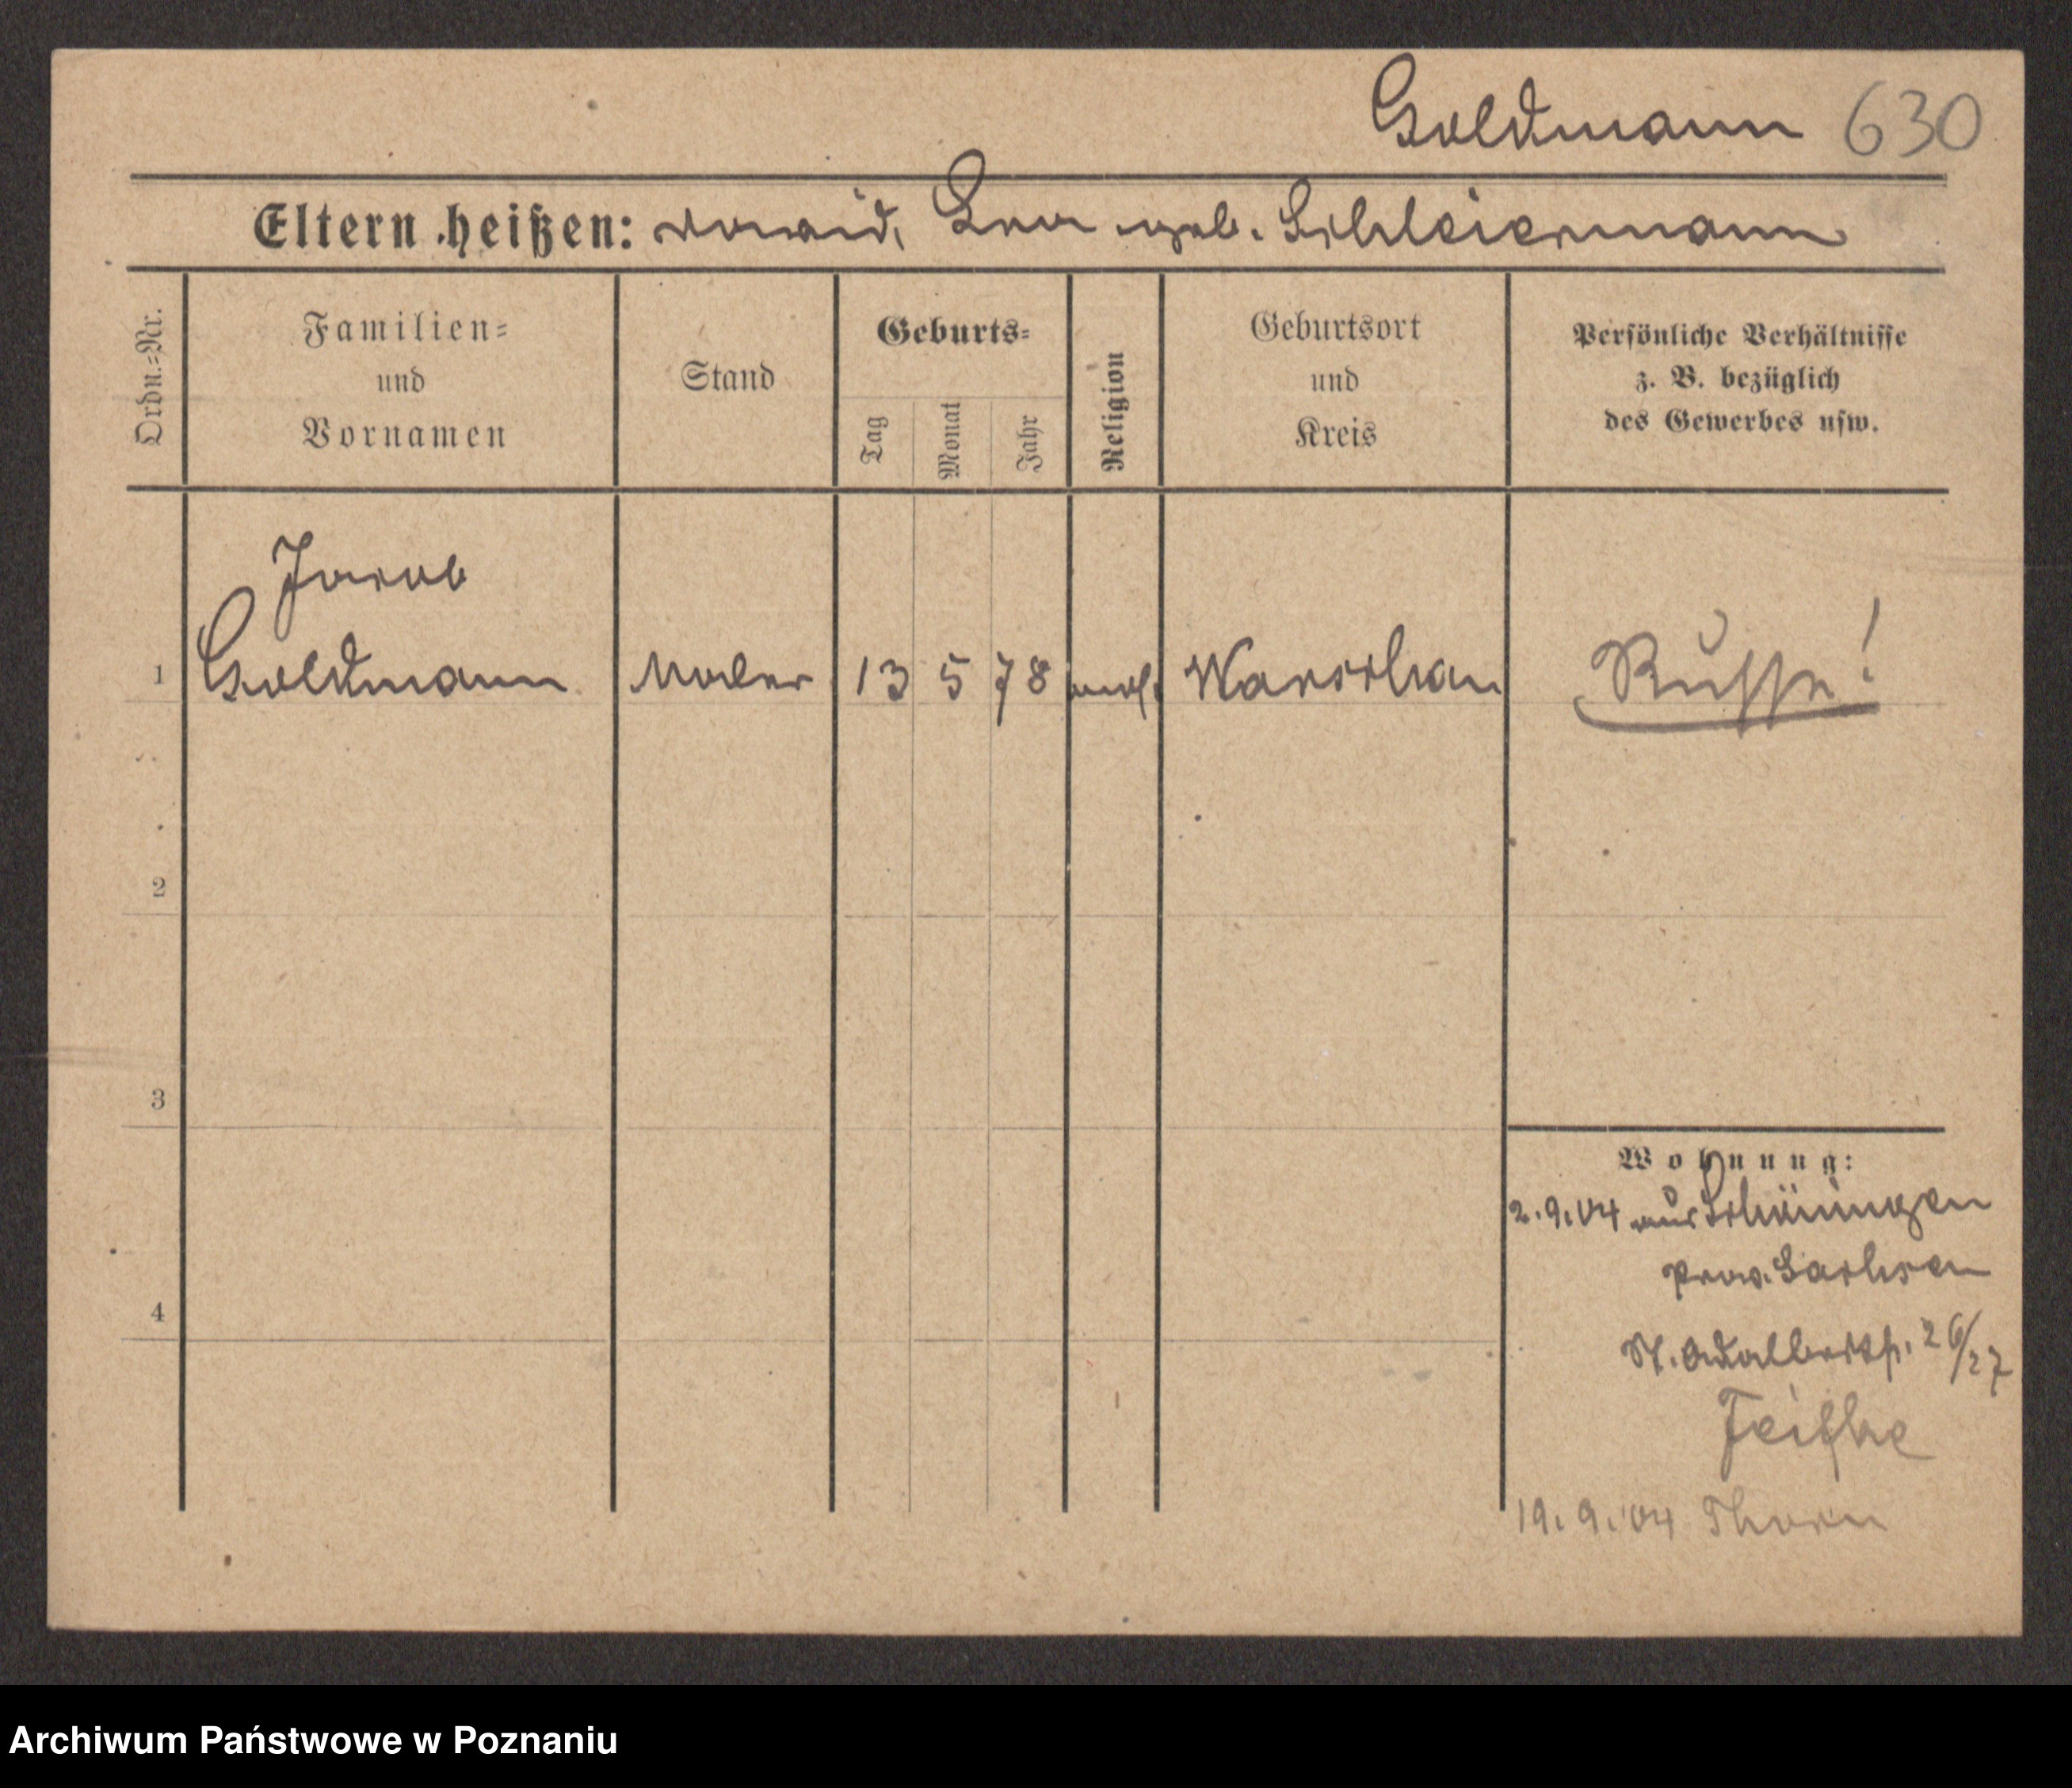 Goldmann 630
Eltern heißen: David, Eva geb. Schleiermann
Ordn.=Nr.
Familien=
und
Vornamen
Stand
Geburts=
Tag
Monat
Jahr
Religion
Geburtsort
und
Kreis
Persönliche Verhältnisse
z. B. bezüglich
des Gewerbes usw.
Jacob
1 Goldmann Maler 13 5 78 mos. Warschau Russe!
2
3
4
Wohnung:
2.9.04 aus Schöningen
Prov. Sachsen
St. Adalbertstr. 26/27
19.9.04 Thorn
Archiwum Państwowe w Poznaniu